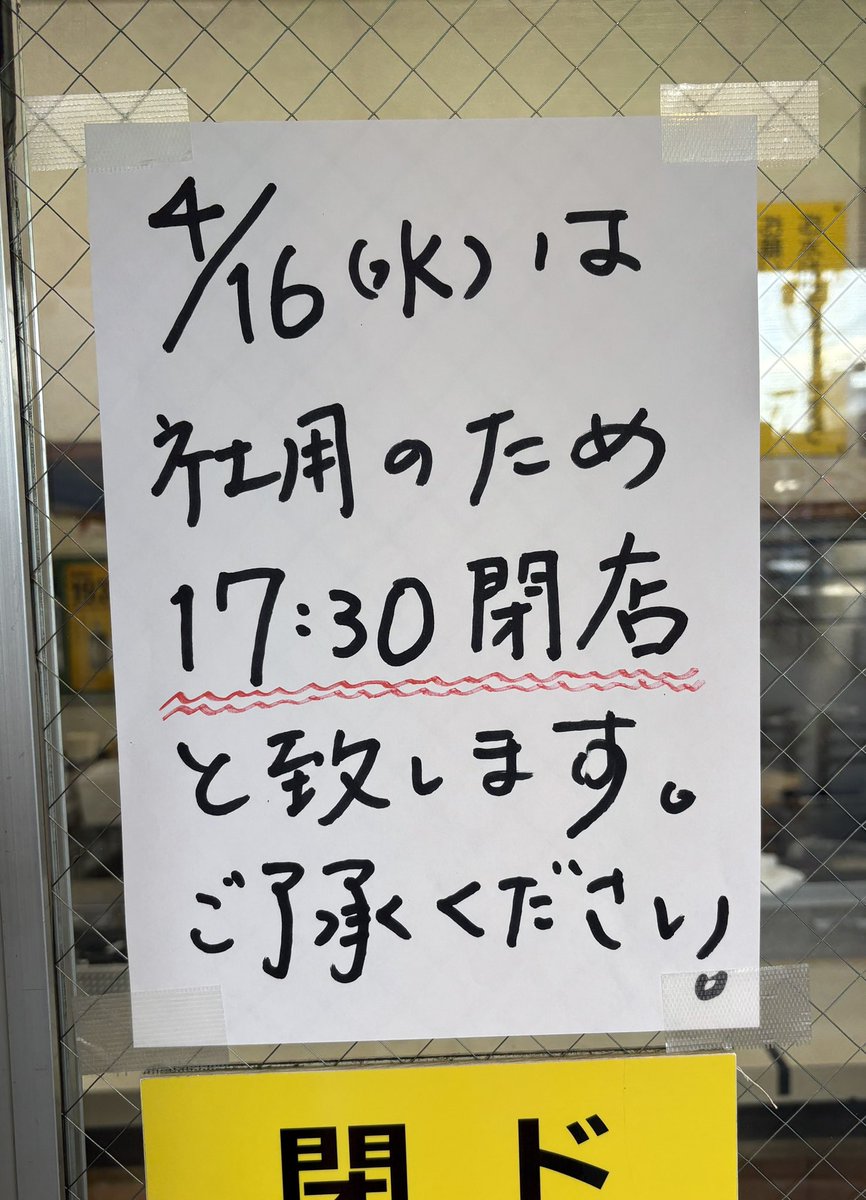 4/16(水)は
社用のため
17:30閉店
と致します。
ご了承ください。
閉ド